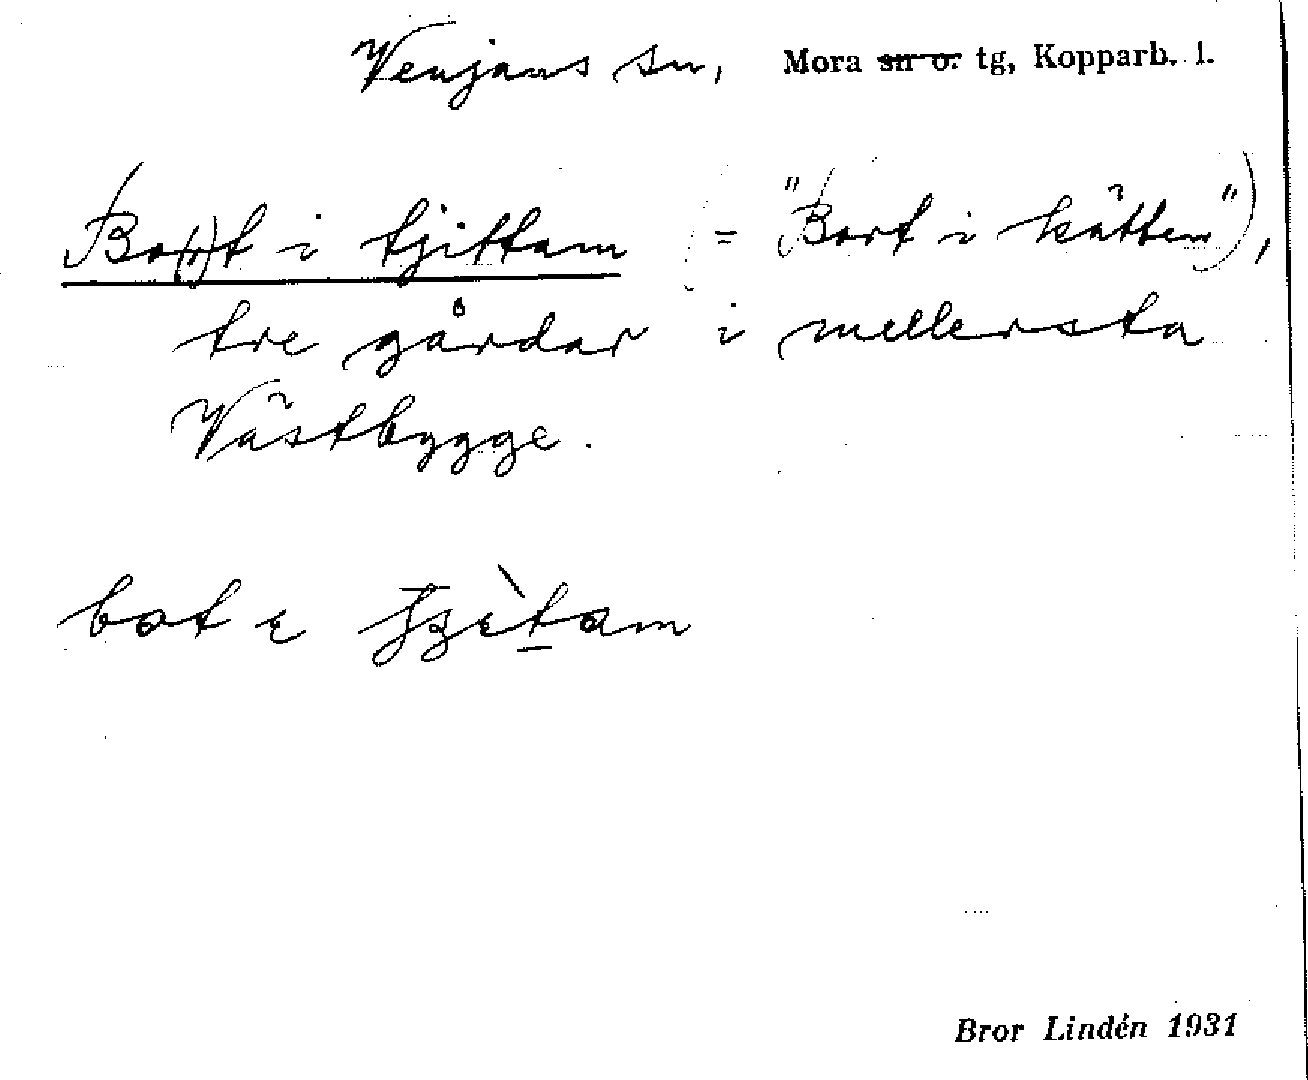 Venjans sn, Mora sn o. tg, Kopparb. l.
Bo(r)t i tjittam (= "Bort i kätten"),
tre gårdar i mellersta
Västbygge.
bot
Bror Lindén 1931